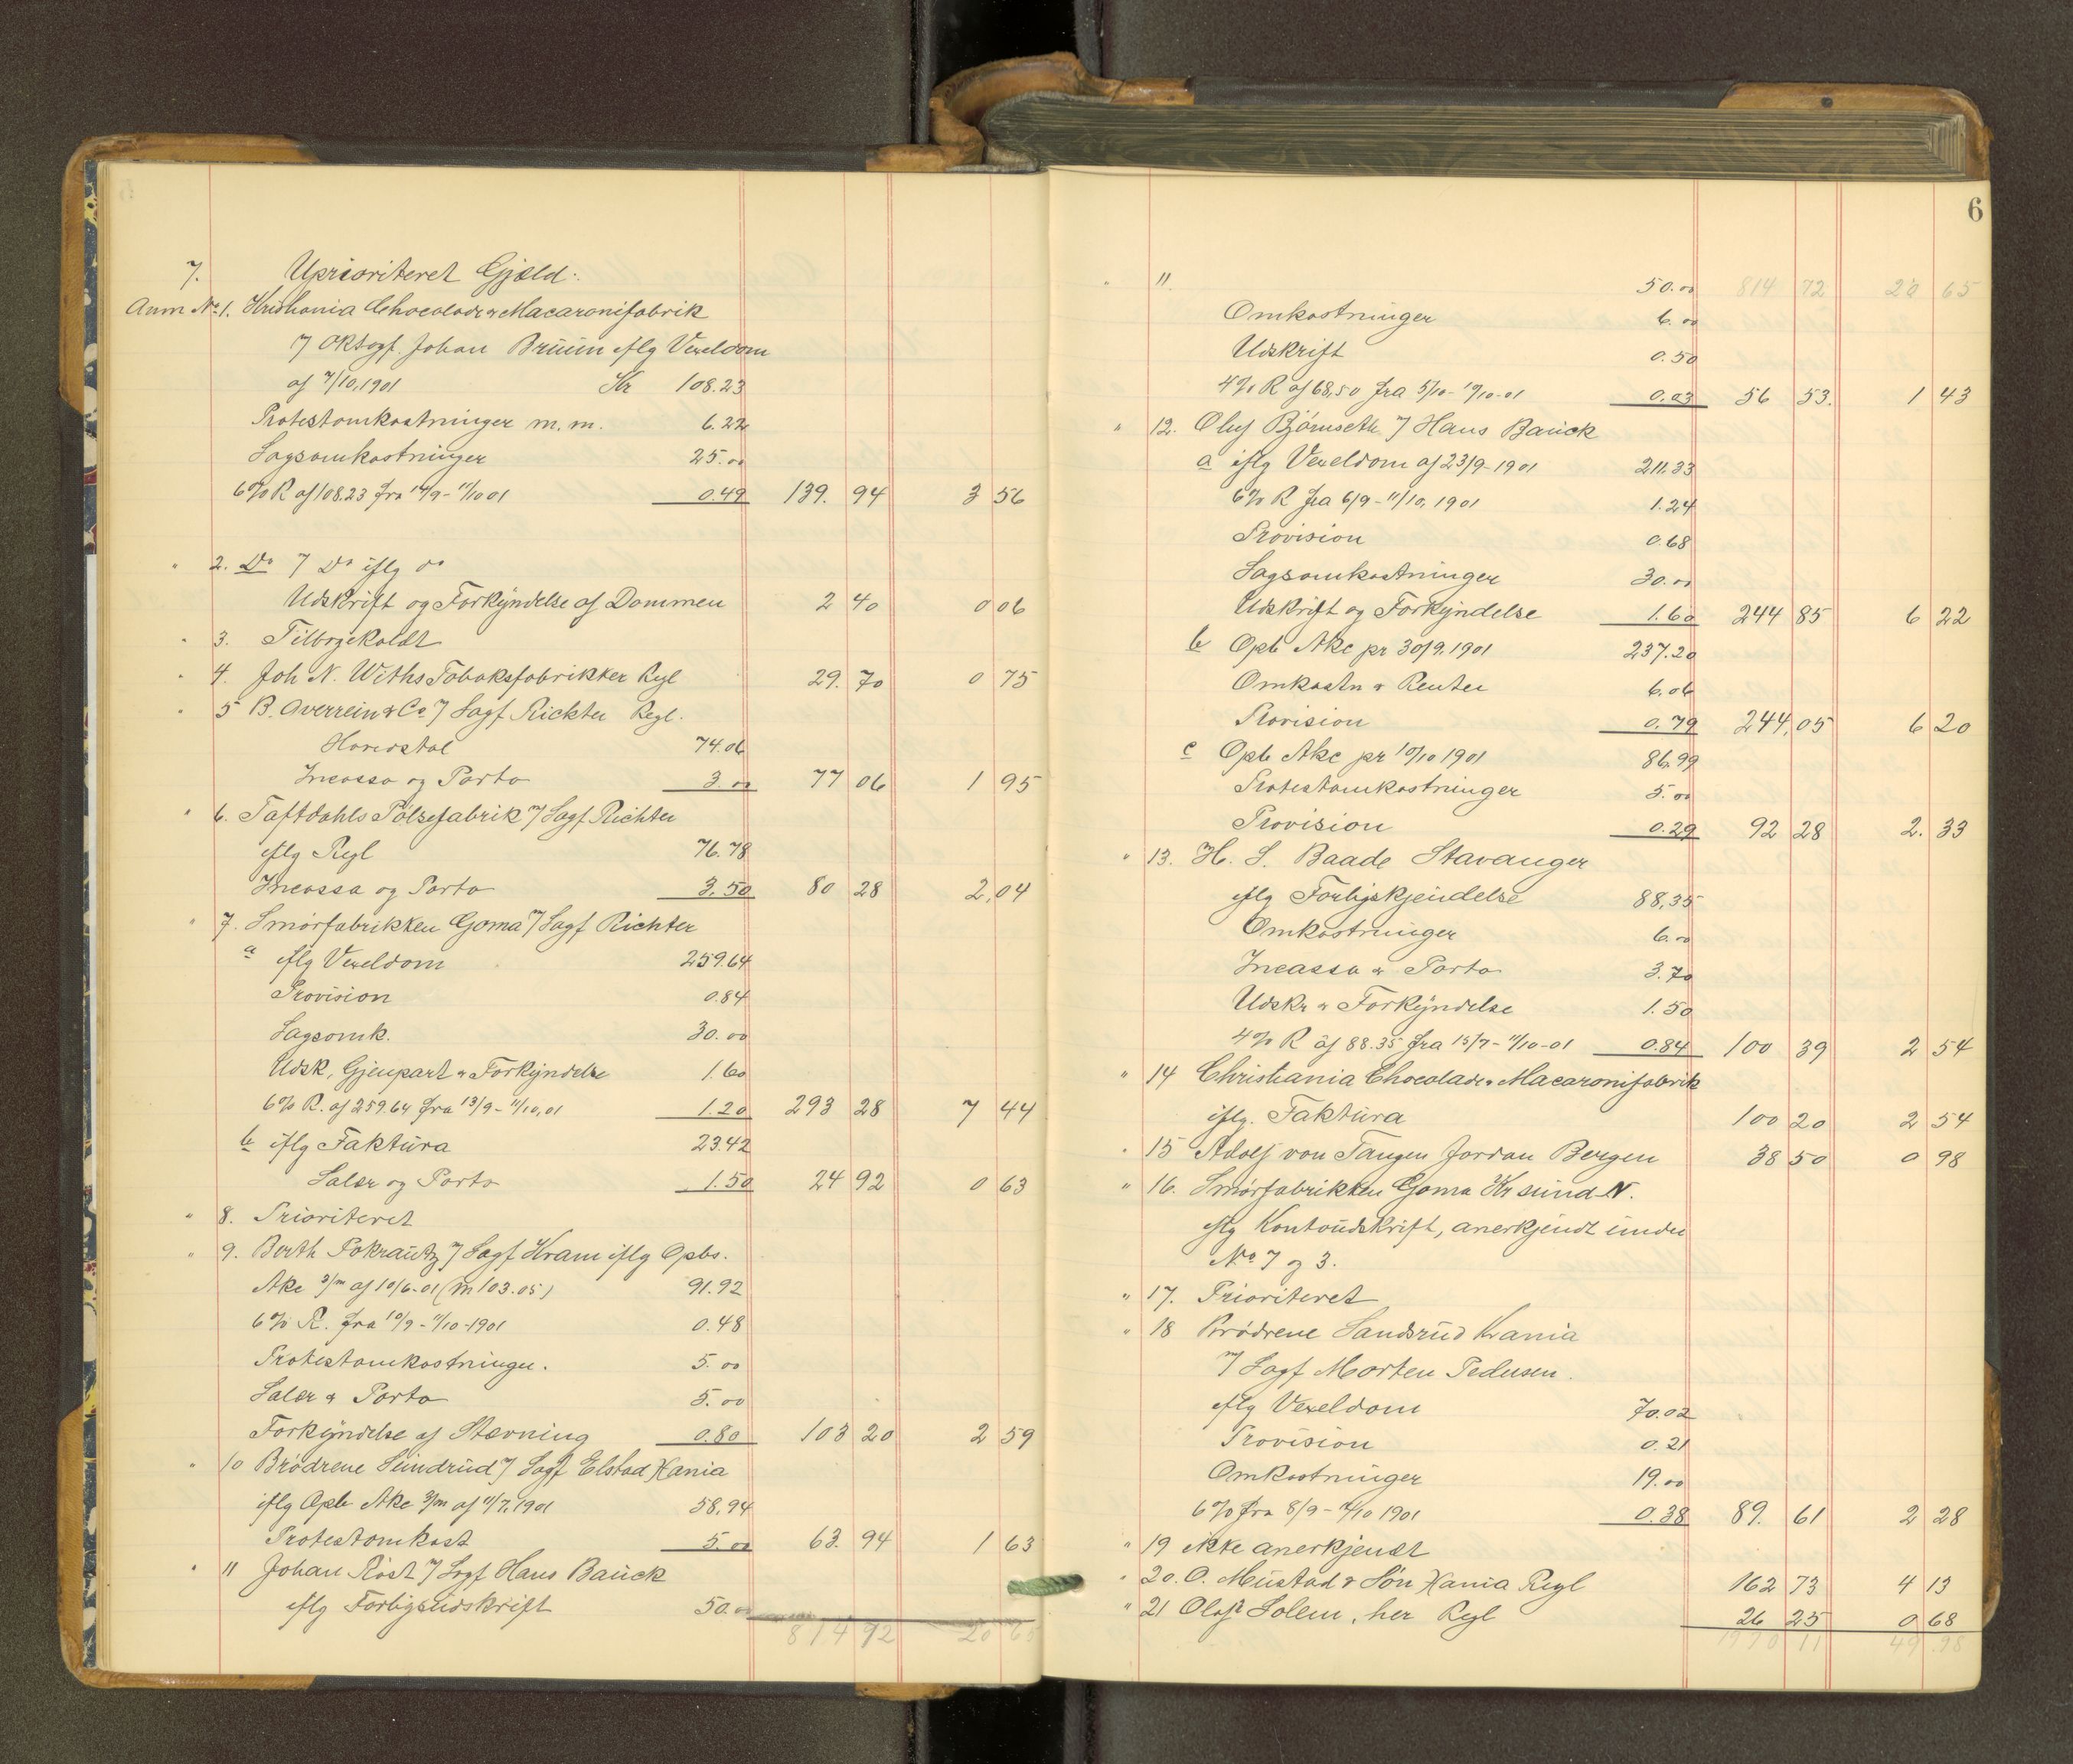 7. Uprioriteret Gjæld:
Anm No 1. Kristiania Chocolade & Macaronifabrik
v/ ORSagf. Johan Bruun iflg Vexeldom
af 7/10, 1901 Kr 108.23
Protestomkostninger m.m. 6.22
Sagsomkostninger 25.00
6% R af 108.23 fra 14/9 - 11/10 01 0.49 139. 94 3 56
" 2. Do v/ Do iflg do
Udskrift og Forkyndelse af Dommen 2 40 0 06
" 3. Tilbagekaldt
" 4. Joh N. Withs Tobaksfabrikker Regl 29. 70 0 75
" 5 B. Averrein & Co v/ Sagf Rickter Regl.
Hovedstol 74.06
Incasso og Porto 3.00 77 06 1 95
" 6. Taftdahls Pølsefabrik v/ Sagf Richter
iflg Regl 76.78
Incasso og Porto 3.50 80 28 2,04
" 7. Smørfabrikken Goma v/ Sagf Richter
a iflg Vexeldom 259.64
Provision 0.84
Sagsomk. 30.00
Udsk, Gjenpart & Forkyndelse 1.60
6% R. af 259.64 fra 13/9 - 11/10, 01 1.20 293 28 7 44
b iflg Faktura 23.42
Salær og Porto 1.50 24 92 0 63
" 8. Prioriteret
" 9. Berth Pokrantz v/ Sagf Hram iflg Opbs.
Akc 3/m af 10/6-01 (M 103.05) 91.92
6% R. fra 10/9 - 11/10-1901 0.48
Protestomkostninger. 5.00
Salær & Porto 5.00
Forkyndelse af Stævning 0.80 103 20 2 59
" 10 Brødrene Sundrud v/ Sagf Elstad Xania
iflg Opb Akc 3/m af 11/7, 1901 58,94
Protestomkost 5.00 63. 94 1 63
" 11 Johan Röst v/ Sagf Hans Bauck
iflg Forligsudskrift 50.00
814 72 20 65
6
" 11. 50.00 814 72 20 65
Omkostninger 6.00
Udskrift 0.50
4% R af 68,50 fra 5/10 - 11/10-01 0.03 56 53. 1 43
" 12. Oluf Bjørnseth v/ Hans Bauck
a iflg Vexeldom af 23/9-1901 211.33
6% R fra 6/9 - 11/10, 1901 1.24
Provision 0.68
Sagsomkostninger 30.00
Udskrift og Forkyndelse 1.60 244 85 6 22
b Opb Akc pr 30/9, 1901 237.20
Omkostn & Renter 6.06
Provision 0.79 244,05 6 20
c Opb Akc pr 10/10 1901 86.99
Protestomkostninger 5.00
Provision 0.29 92 28 2. 33
" 13. H. S. Baade Stavanger
iflg Forligskjendelse 88,35
Omkostninger 6.00
Incasso & Porto 3.70
Udskr & Forkyndelse 1.50
4% R af 88.35 fra 15/7 - 11/10-01 0.84 100 39 2 54
" 14 Christiania Chocolade & Macaronifabrik
iflg. Faktura 100 20 2 54
" 15 Adolf von Tangen Jordan Bergen 38 50 0 98
" 16. Smørfabrikken Goma Kr sund N.
iflg Kontoudskrift, anerkjendt under
No 7 og 3.
" 17. Prioriteret
" 18 Brødrene Sandsrud Krania
v/ Sagf Morten Pedersen.
iflg Vexeldom 70.02
Provision 0.21
Omkostninger 19.00
6% fra 8/9 - 11/10 1901 0.38 89. 61 2 28
" 19 ikke anerkjendt
" 20. O. Mustad & Søn Xania Regl 162 73 4 13
" 21 Olaf Solem, her Regl 26 25 0 68
1970 11 49.98